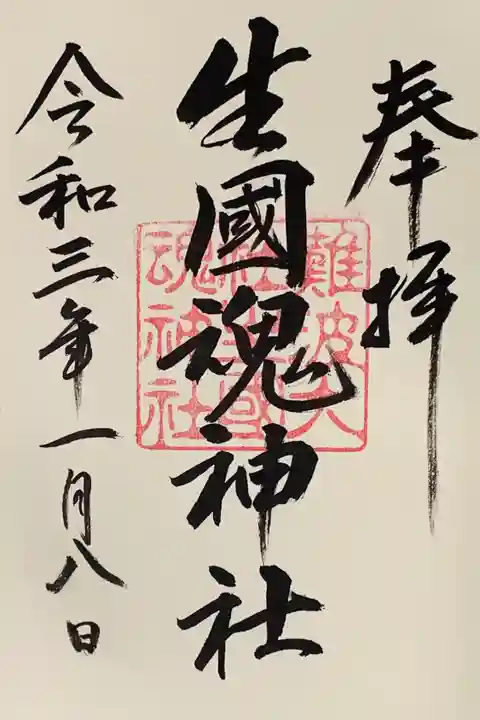 奉拝
生國魂神社
難波大社生國魂神社
令和三年一月八日